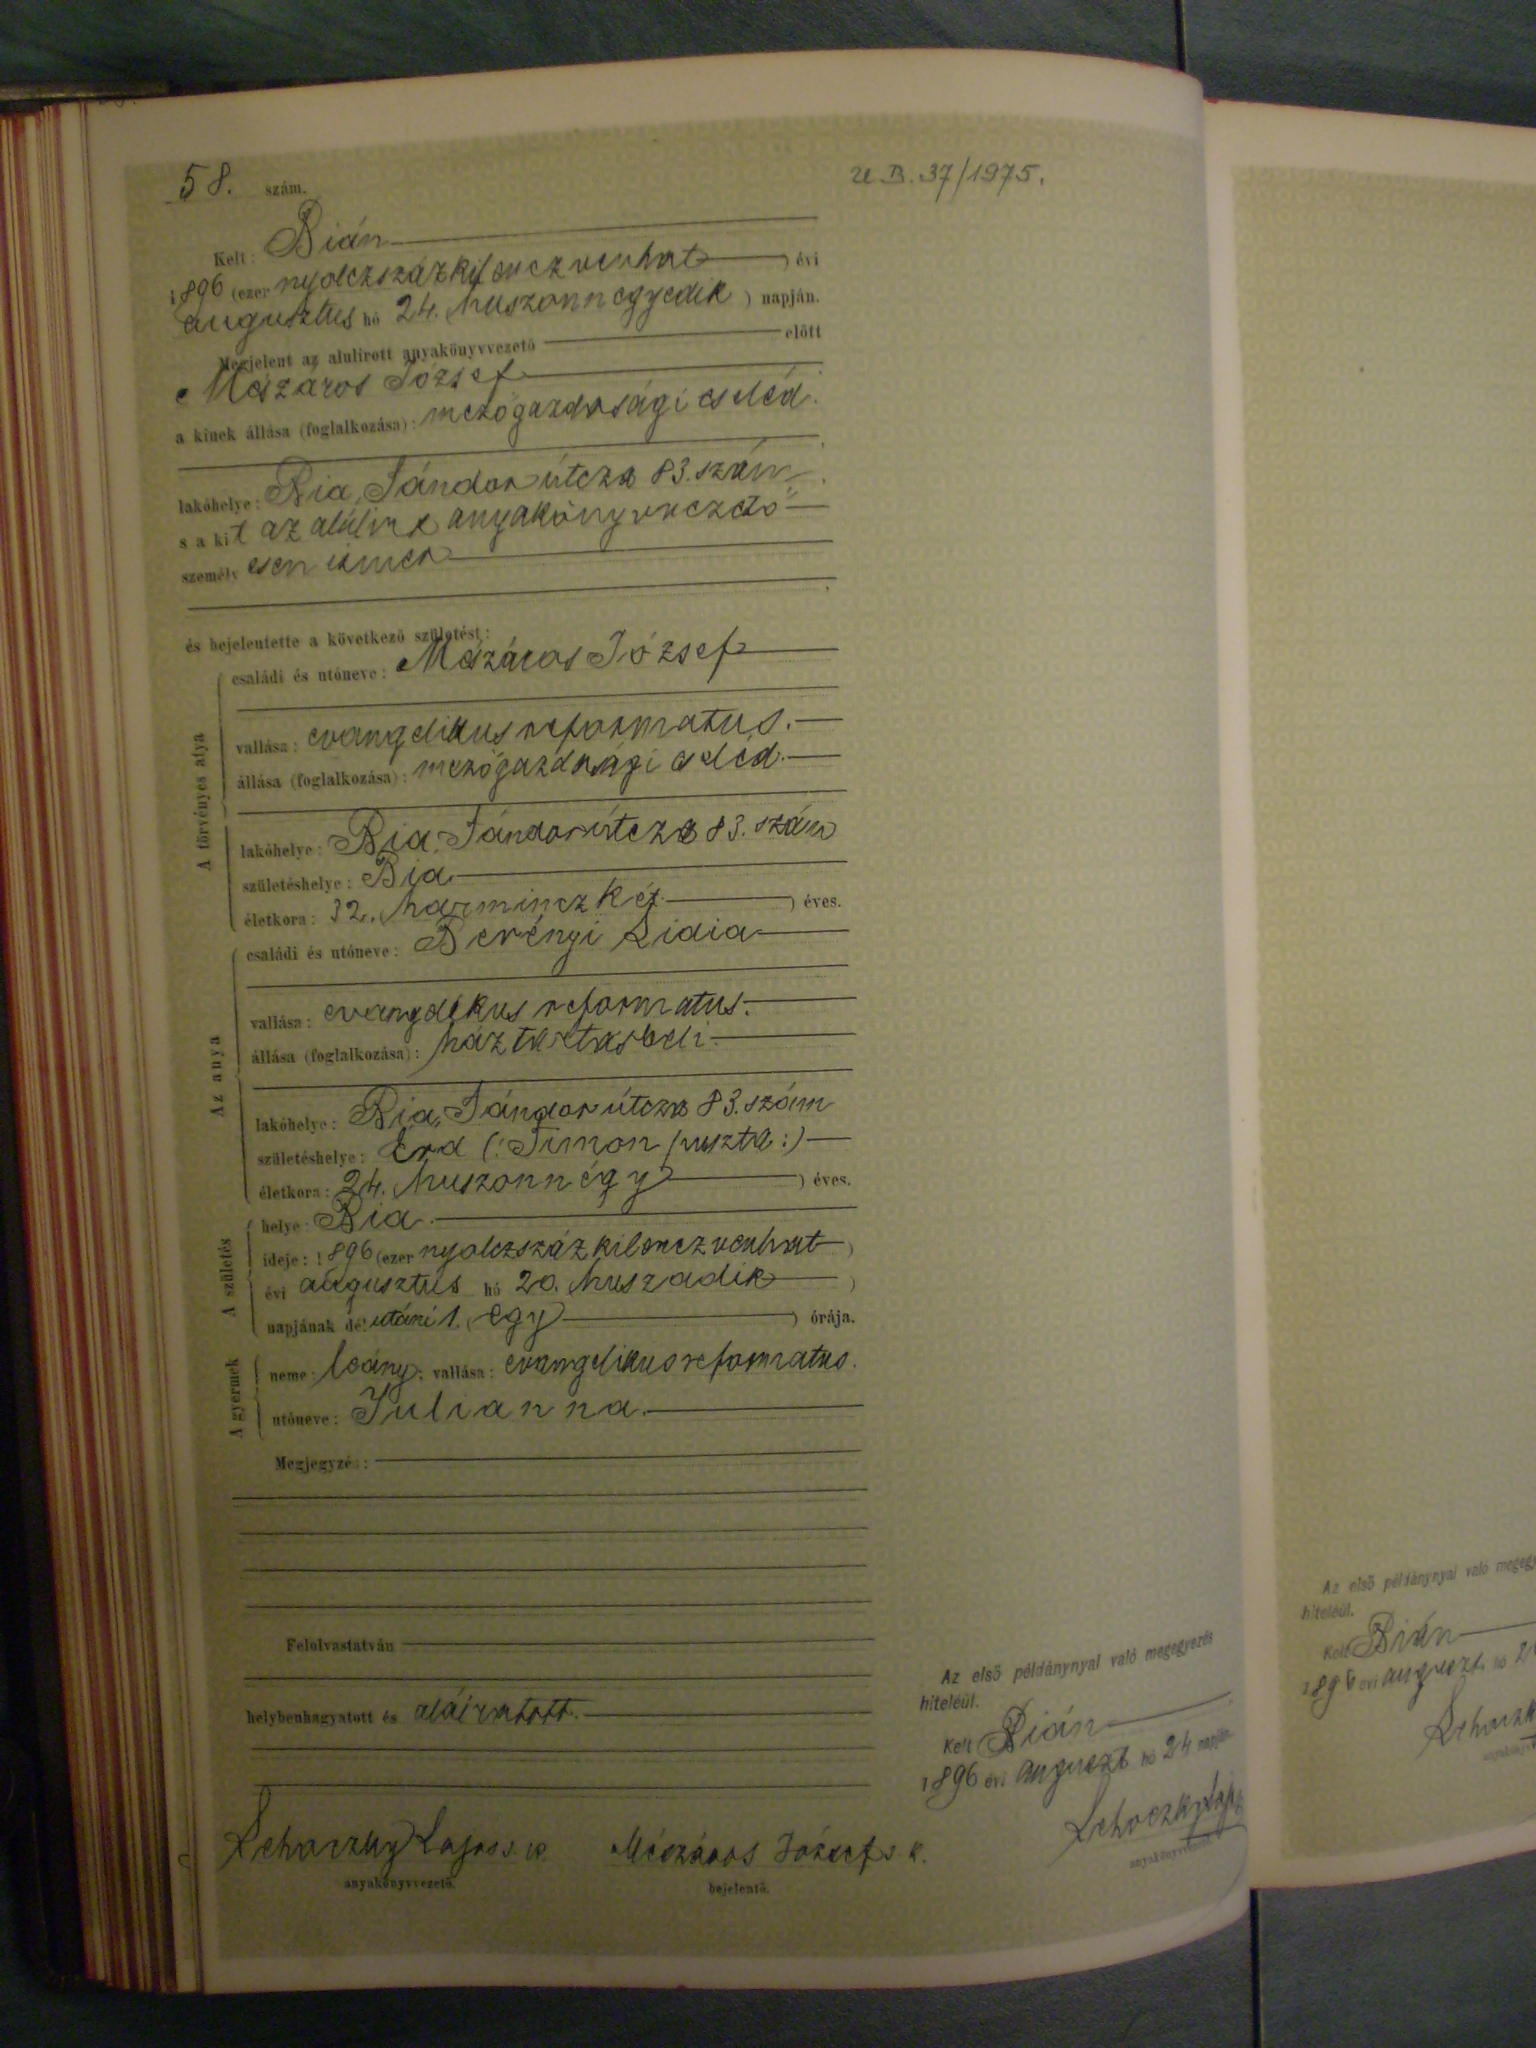 58. szám.
U B. 37/1975.
Kelt: Bián
1896 (ezer nyolczszázkilenczvenhat) évi
augusztus hó 24. huszonnegyedik) napján.
Megjelent az alulirott anyakönyvvezető előtt
Mészáros József
a kinek állása (foglalkozása): mezőgazdasági cseléd.
lakóhelye: Bia, Sándor útcza 83. szám
s a kit az alúlirt anyakönyvvezető
személyesen ismer
és bejelentette a következő születést:
A törvényes atya
családi és utóneve: Mészáros József
vallása: evangelikus reformatus.
állása (foglalkozása): mezőgazdasági cseléd.
lakóhelye: Bia, Sándor útcza 83. szám
születéshelye: Bia
életkora: 32. harminczkét) éves.
Az anya
családi és utóneve: Berényi Lidia
vallása: evangelikus reformatus.
állása (foglalkozása): háztartásbeli.
lakóhelye: Bia, Sándor útcza 83. szám
születéshelye: Érd (: Simon puszta :)
életkora: 24. huszonnégy) éves.
A születés
helye: Bia.
ideje: 1896 (ezer nyolczszáz kilenczvenhat)
évi augusztus hó 20. huszadik)
napjának délutáni 1. (egy) órája.
A gyermek
neme: leány; vallása: evangelikus reformatus.
utóneve: Julianna.
Megjegyzés:
Felolvastatván
helybenhagyatott és aláiratott.
Lehoczky Lajos s. k. Mészáros József s. k.
anyakönyvvezető. bejelentő.
Az első példánynyal való megegyezés
hiteléül.
Kelt Bián
1896 évi auguszt hó 24 napján.
Lehoczky Lajos
anyakönyvvezető
Az első példánynyal való
hiteléül.
Kelt Bián
1896 évi auguszt. hó